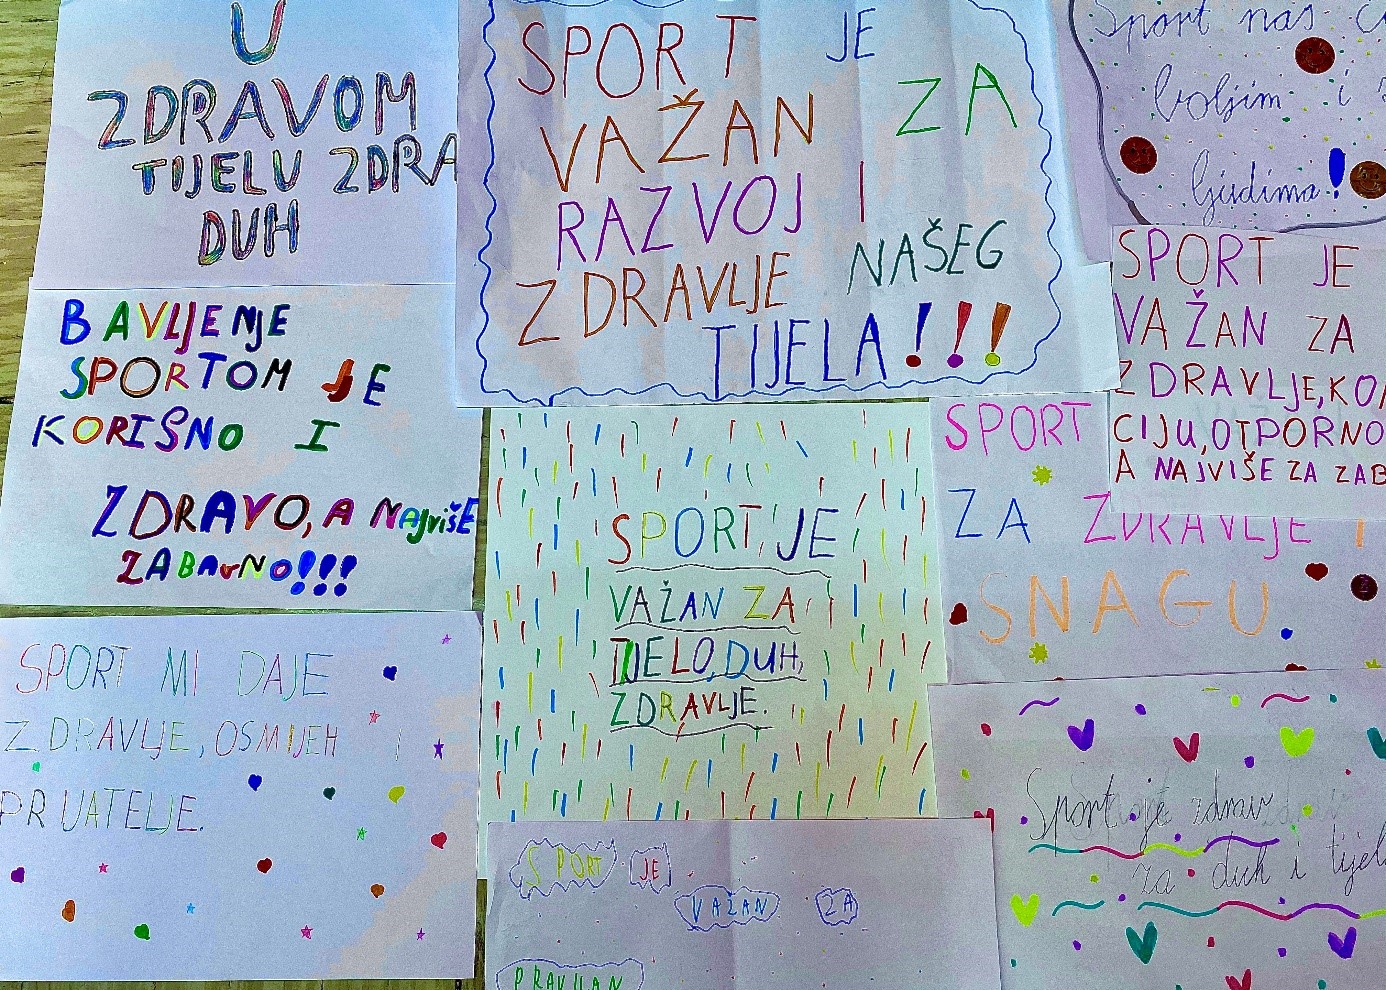 U
ZDRAVOM
TIJELU ZDRA
DUH
SPORT JE
VAŽAN ZA
RAZVOJ I
ZDRAVLJE NAŠEG
TIJELA!!!
Sport nas
boljim i
ljudima!
BAVLJENJE
SPORTOM JE
KORISNO I
ZDRAVO, A NAJVIŠE
ZABAVNO!!!
SPORT JE
VAŽAN ZA
TIJELO, DUH,
ZDRAVLJE.
SPORT JE
VAŽAN ZA
ZDRAVLJE, KON
CIJU, OTPORNO
A NAJVIŠE ZA ZAB
SPORT
ZA ZDRAVLJE I
SNAGU
SPORT MI DAJE
ZDRAVLJE, OSMIJEH I
PRIJATELJE.
SPORT JE
VAŽAN ZA
PRAVILAN
Sport je zdrav
za duh i tijelo